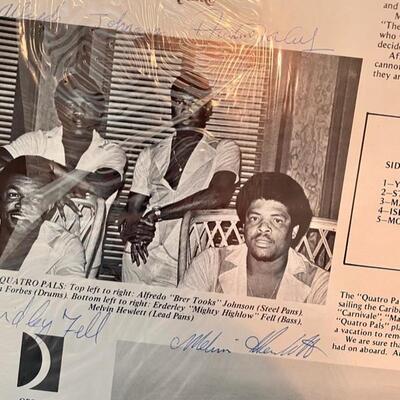 and M
"The
who
decide
Af
cannot
they are
SID
1—Y
2—ST
3—MA
4—ISL
5—MO
QUATRO PALS: Top left to right: Alfredo "Brer Tooks" Johnson (Steel Pans).
Forbes (Drums). Bottom left to right: Erderley "Mighty Highlow" Fell (Bass).
Melvin Hewlett (Lead Pans)
The "Quatro Pals"
sailing the Caribe
"Carnivale", "Ma
"Quatro Pals" play
a vacation to remen
We are sure that
had on aboard. A
Fell
Melvin Hewlett